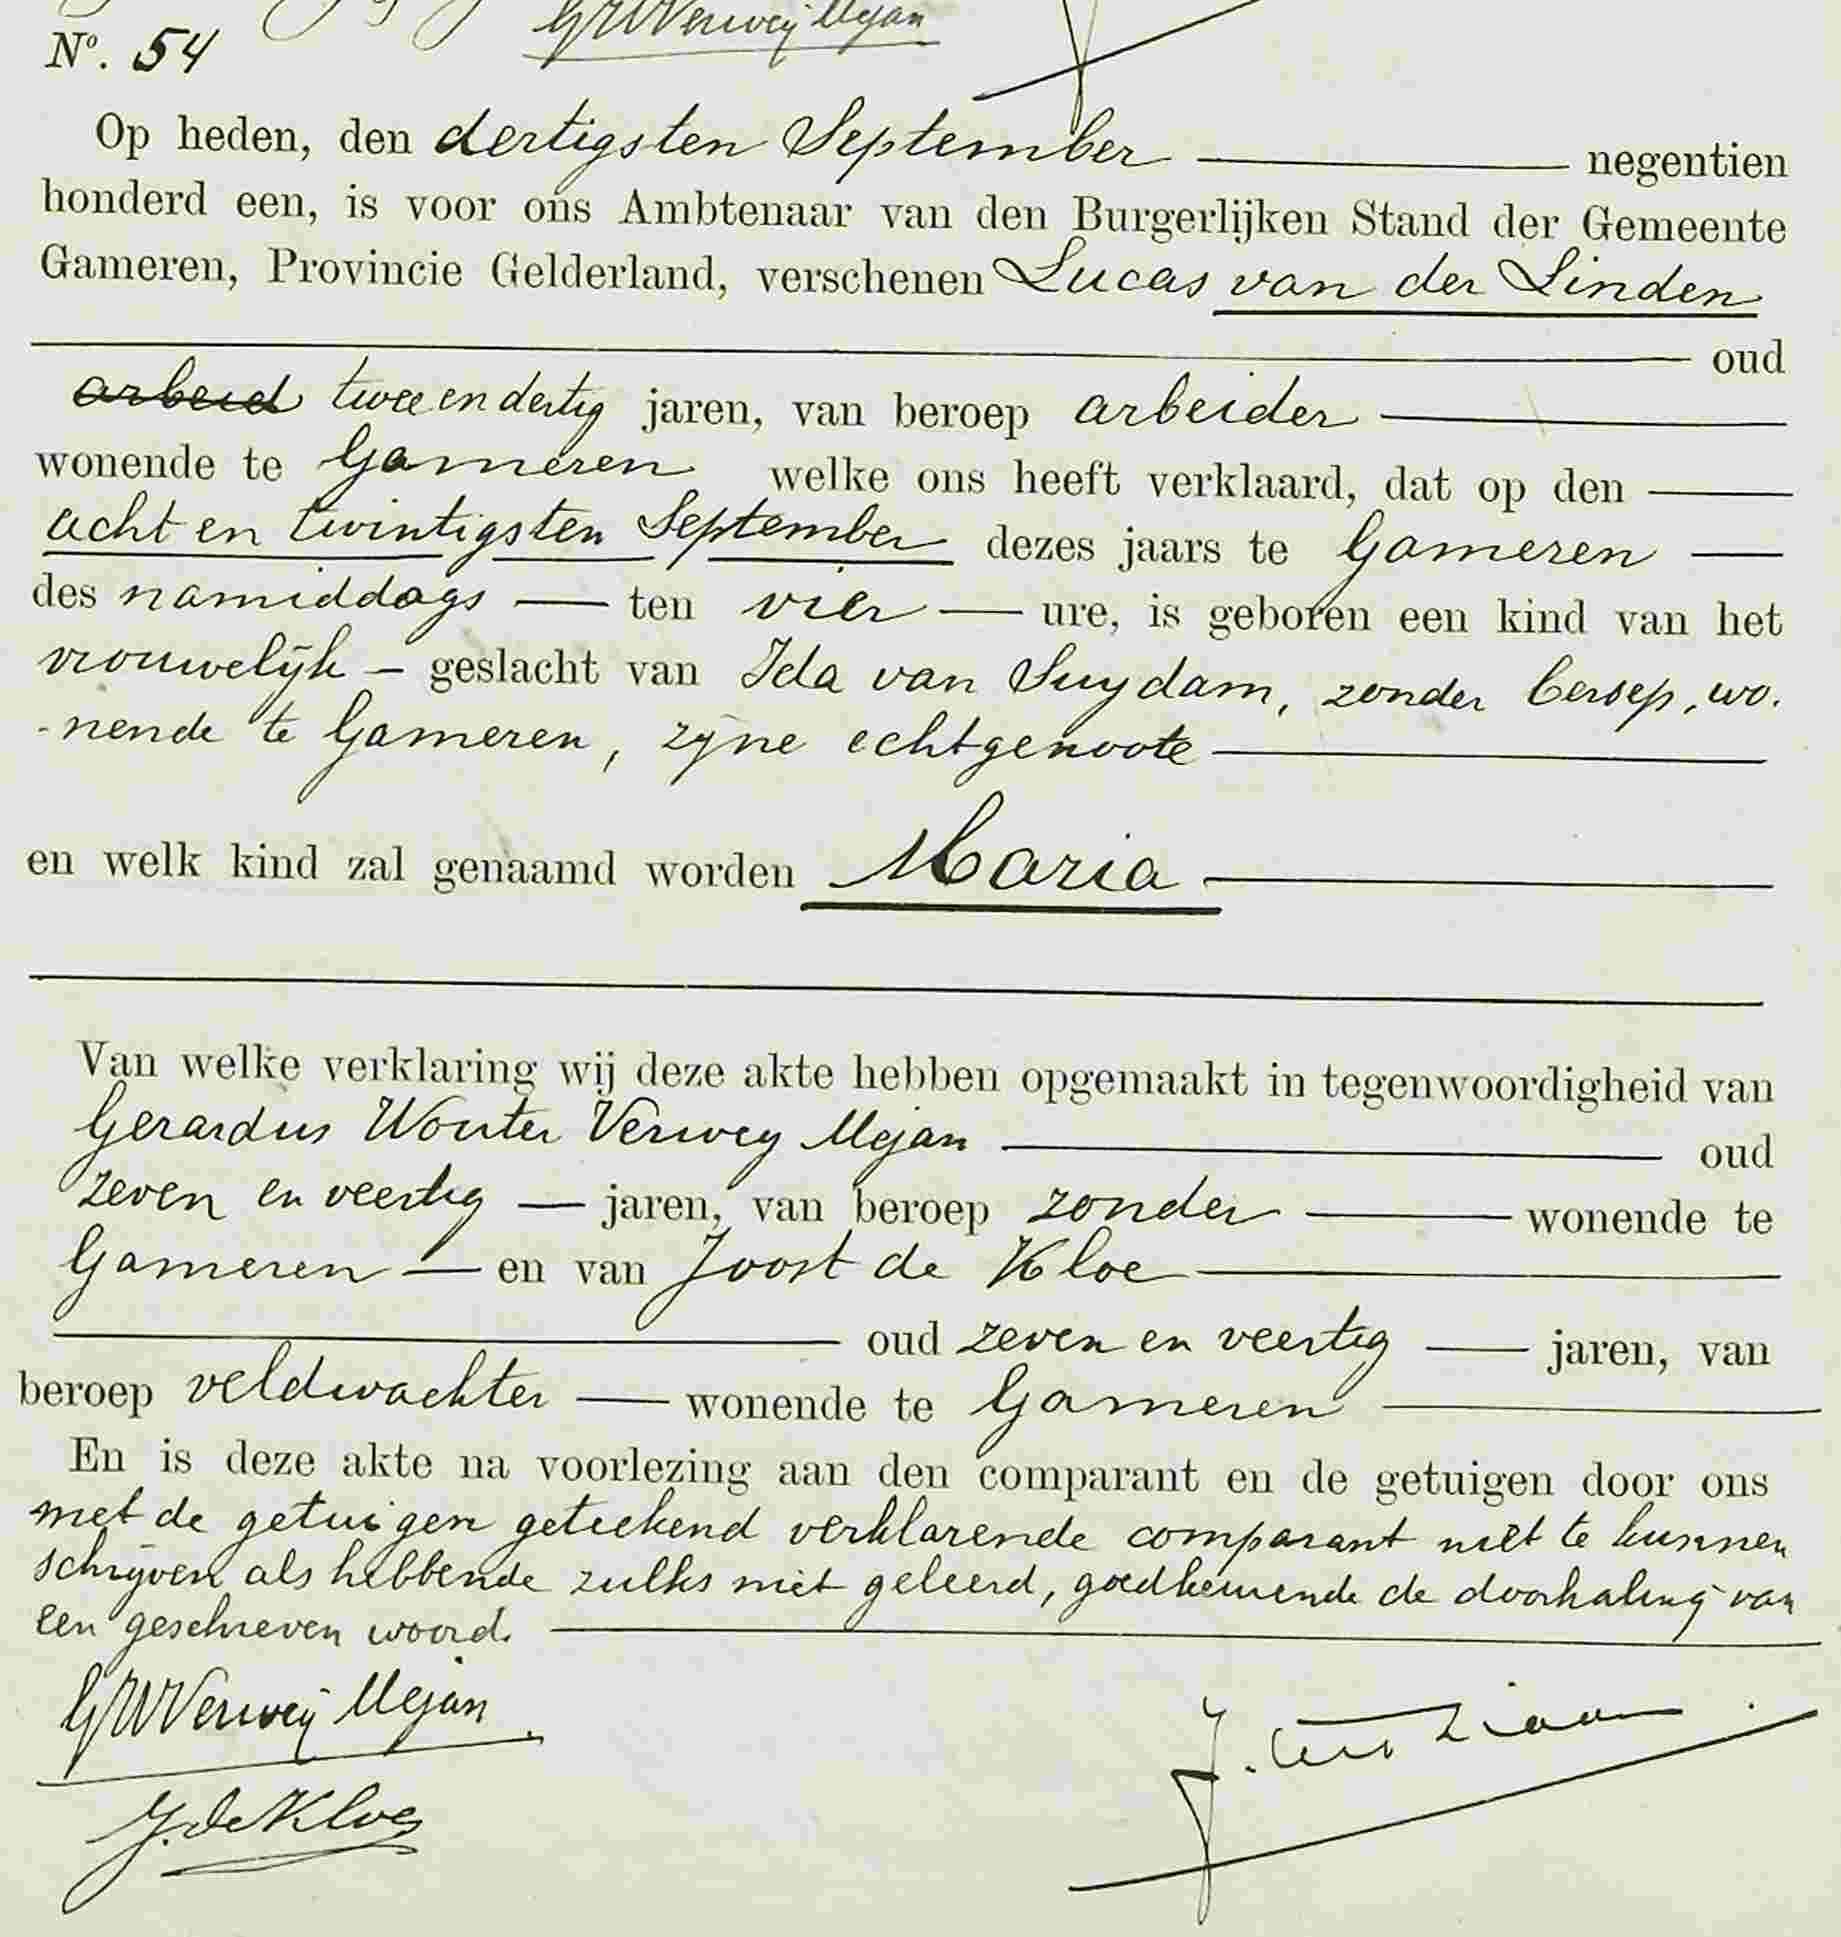 GWVerweij Mejan
Nº. 54
Op heden, den dertigsten September negentien
honderd een, is voor ons Ambtenaar van den Burgerlijken Stand der Gemeente
Gameren, Provincie Gelderland, verschenen Lucas van der Linden
oud
arbeid twee en dertig jaren, van beroep arbeider
wonende te Gameren welke ons heeft verklaard, dat op den
acht en twintigsten September dezes jaars te Gameren
des namiddags ten vier ure, is geboren een kind van het
vrouwelijk geslacht van Ida van Suydam, zonder beroep, wo-
-nende te Gameren, zijne echtgenoote
en welk kind zal genaamd worden Maria
Van welke verklaring wij deze akte hebben opgemaakt in tegenwoordigheid van
Gerardus Wouter Verwey Mejan oud
zeven en veertig jaren, van beroep zonder wonende te
Gameren en van Joost de Kloe
oud zeven en veertig jaren, van
beroep veldwachter wonende te Gameren
En is deze akte na voorlezing aan den comparant en de getuigen door ons
met de getuigen geteekend verklarende comparant niet te kunnen
schrijven als hebbende zulks niet geleerd, goedkeurende de doorhaling van
een geschreven woord.
GWVerweij Mejan
J. de Kloe
J.